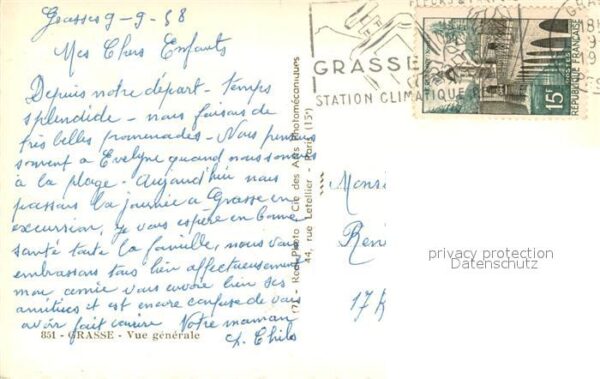 Grasse 9-9-58
Mes Chers Enfants
Depuis notre départ - temps
splendide - nous faisons de
très belles promenades - Nous pensons
souvent à Evelyne quand nous sommes
à la plage - Aujourd'hui nous
passons la journée à Grasse en
excursion, je vous espère en bonne
santé toute la famille, nous vous
embrassons tous bien affectueusement
mon amie vous envoie bien ses
amitiés et est encore confuse de vous
avoir fait Votre maman
851 - GRASSE - Vue générale
(7) - Cie des Arts Photomécaniques
44, rue Letellier - Paris (15e)
GRASSE
STATION CLIMATIQUE
REPUBLIQUE FRANÇAISE
15F
Monsi
René
17
privacy protection
Datenschutz